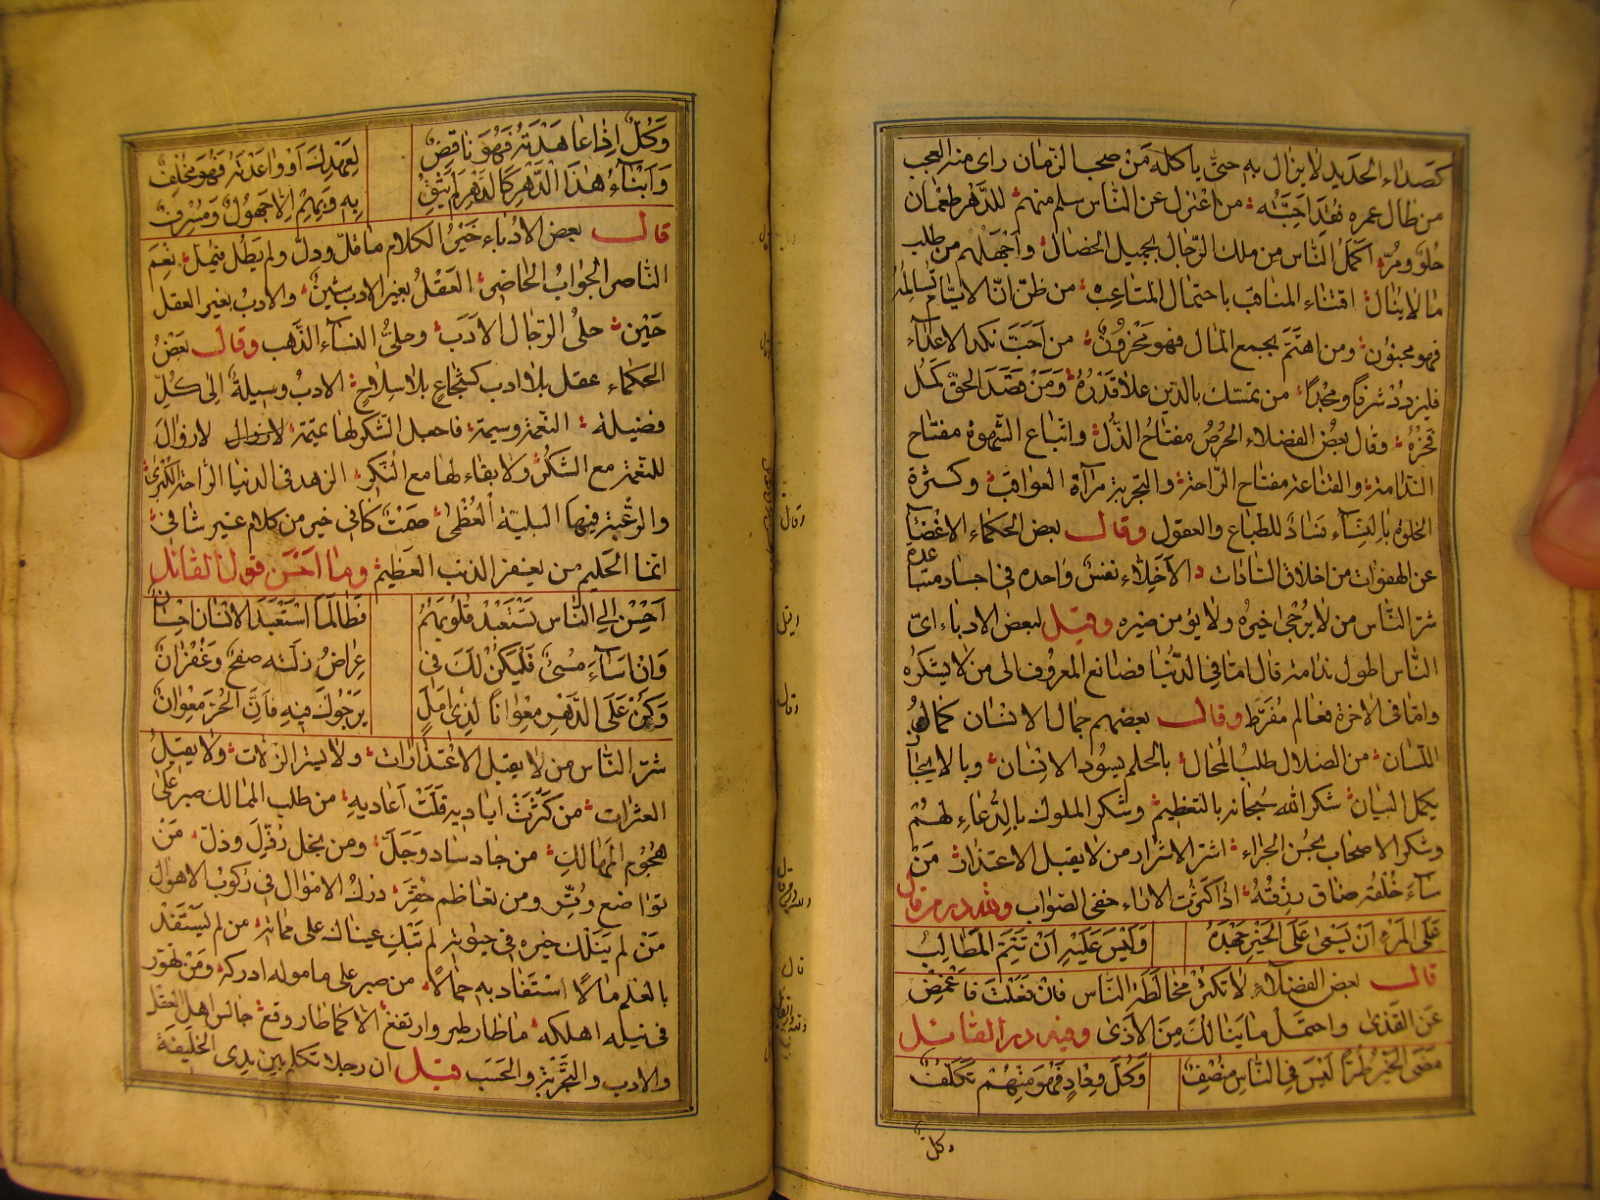 كصداء الحديد لا يزال به حتى ياكله من صحب الزمان راى منه العجب
من طال عمره فقد احبته من اعتزل عن الناس سلم منهم للدهر طعمان
حلو ومر اكمل الناس من ملك الرجال بجميل الخصال واجهلهم من طلب
ما لا ينال اقتناء المناقب باحتمال المتاعب من ظن ان الايام تسالمه
فهو مجنون ومن اهتم بجمع المال فهو محزون من احب نكد الاعداء
فليزدد شرفا ومجدا من تمسك بالدين علا قدره ومن قصد الحق كمل
فخره وقال بعض الفضلاء الحرص مفتاح الذل واتباع الشهوة مفتاح
الندامة والقناعة مفتاح الراحة والتجربة مرآة العواقب وكثرة
الخلوة بالنساء فساد للطباع والعقول وقال بعض الحكماء الاغضاء
عن الهفوات من اخلاق السادات الاخلاء نفس واحده في اجساد متباعدة
شر الناس من لا يرجى خيره ولا يؤمن ضيره وقيل لبعض الادباء اى
الناس اطول ندامة قال اما في الدنيا فصانع المعروف الى من لا يشكره
واما في الاخرة فعالم مفرط وقال بعضهم جمال الانسان كمال
اللسان من الضلال طلب المحال بالحلم يسود الانسان وبالايجاز
يكمل البيان شكر الله سبحانه بالتعظيم وشكر الملوك بالدعاء لهم
وشكر الاصحاب بحسن الجزاء اشر الاشرار من لا يقبل الاعتذار من
ساء خلقه ضاق رزقه اذا كثرت الاراء خفى الصواب ولله در من قال
على المرء ان يسعى على الخير جهده وليس عليه ان تتم المطالب
قال بعض الفضلاء لا تكثر مخالطة الناس فان فعلت فاغمض
عن القذى واحتمل ما ينالك من الاذى وفيه در القائل
مضى الخير طرا ليس في الناس منصف وكل وداد فهو منهم تكلف
وكل
وكل اذا عاهدته فهو ناقض لعهدك او واعدته فهو مخلف
وابناء هذا الدهر كالدهر لم يثق به وبهم الا جهول ومسرف
قال بعض الادباء خير الكلام ما قل ودل ولم يطل فيمل نعم
الناصر الجواب الحاضر العقل بغير الادب شين والادب بغير العقل
حين حلى الرجال الادب وحلى النساء الذهب وقال بعض
الحكماء عقل بلا ادب كشجاع بلا سلاح الادب وسيلة الى كل
فضيلة النعمة وسيمة فاجعل الشكر لها تميمة لا زوال لا زوال
للنعمة مع الشكر ولا بقاء لها مع النكر الزهد في الدنيا الراحة الكبرى
والرغبة فيها البلية العظمى صمت كافى خير من كلام غير شافى
انما الحليم من يغفر الذنب العظيم وما احسن قول القائل
احسن الى الناس تستعبد قلوبهم فطالما استعبد الانسان احسان
وان اساء مسئ فليكن لك فى عراض زلته صفح وغفران
وكن على الدهر معوانا لذى امل يرجوك فيه فان الحر معوان
شر الناس من لا يقبل الاعتذارات ولا يستر الزلات ولا يقيل
العثرات من كثرت اياديه قلت اعاديه من طلب الممالك صبر على
هجوم المهالك من جاد ساد وجل ومن بخل رذل وذل من
تواضع وقر ومن تعاظم حقر درك الاموال في ركوب الاهوال
من لم ينلك خيره في حيوته لم تبك عيناك على مماته من لم يستفد
بالعلم مالا استفاد به جمالا من صبر على مامولة ادركه ومن تهور
في نيله اهلكه ما طار طير وارتفع الا كما طار وقع جالس اهل العقل
والادب والتجربة والحسب قيل ان رجلا تكلم بين يدى الخليفة
وقال
وقال
قال